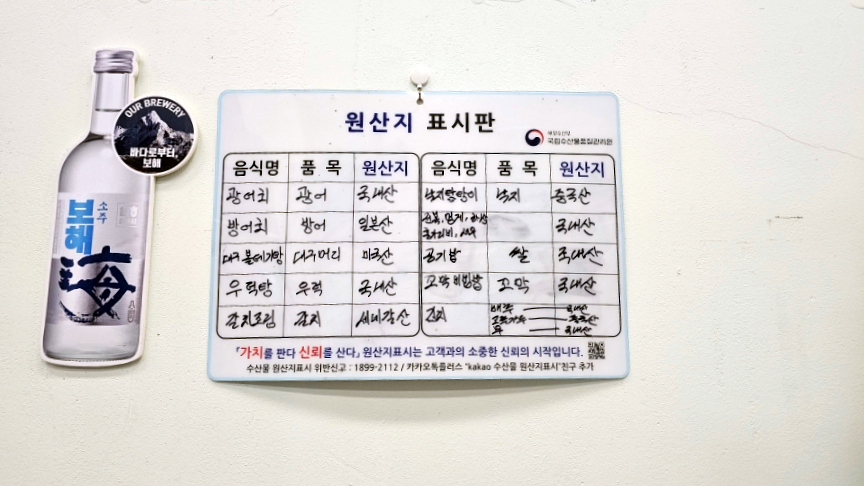 OUR BREWERY
바다로부터,
보해
소주
보해
海
원산지 표시판
해양수산부
국립수산물품질관리원
음식명 품 목 원산지 음식명 품 목 원산지
광어회 광어 국내산 낙지탕탕이 낙지 중국산
방어회 방어 일본산 전복, 멍게, 해삼 국내산
가리비, 새우
대구뽈데기탕 대구머리 미국산 공기밥 쌀 국내산
우럭탕 우럭 국내산 꼬막비빔밥 꼬막 국내산
갈치조림 갈치 세네갈산 김치 배추 국내산
고춧가루 중국산
무 국내산
「가치를 판다 신뢰를 산다」 원산지표시는 고객과의 소중한 신뢰의 시작입니다.
수산물 원산지표시 위반신고 : 1899-2112 / 카카오톡플러스 "kakao 수산물 원산지표시"친구 추가